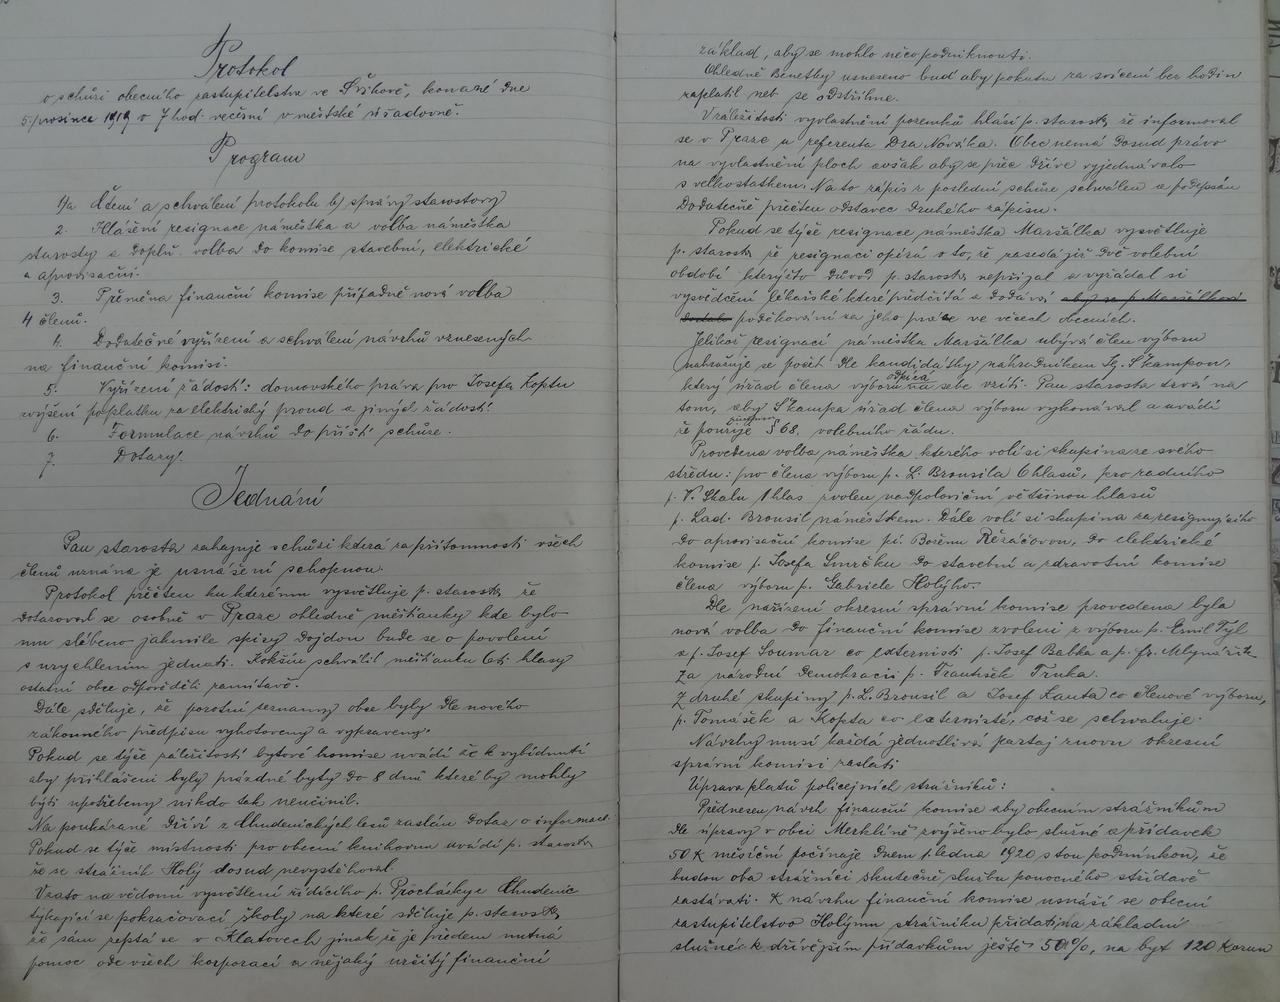 Protokol
o schůzi obecního zastupitelstva ve Švihově, konané dne
5. prosince 1919 o 7 hod. večerní v městské úřadovně.
Program
1/a Čtení a schválení protokolu b) správy starostovy
2. Hlášení resignace náměstka a volba náměstka
starosty a doplň. volba do komise stavební, elektrické
a aprovisační.
3. Přeměna finanční komise případně nová volba
4 členů.
4. Dodatečné vyřízení a schválení návrhů vznesených
na finanční komisi.
5. Vyřízení žádostí: domovského práva pro Josefa Koptu
zvýšení poplatku za elektrický proud a jiných žádostí.
6. Formulace návrhů do příští schůze.
7. Dotazy.
Jednání
Pan starosta zahajuje schůzi která za přítomnosti všech
členů uznána je usnášení schopnou.
Protokol přečten ku kterému vysvětluje p. starosta, že
dotazoval se osobně v Praze ohledně měšťanky kde bylo
mu slíbeno jakmile spisy dojdou bude se o povolení
s urychlením jednati. Kokšín schválil měšťanku 6ti hlasy
ostatní obce odpověděli zamítavě.
Dále sděluje, že porotní seznamy obce byly dle nového
zákonného předpisu vyhotoveny a vypraveny.
Pokud se týče záležitosti bytové komise uvádí že k vybídnutí
aby přihlášeni byly prázdné byty do 8 dnů které by mohly
býti upotřebeny nikdo tak neučinil.
Na poukázané dříví z Chudenických lesů zaslán dotaz o informaci.
Pokud se týče místnosti pro obecní knihovnu uvádí p. starosta
že se strážník Holý dosud nevystěhoval.
Vzato na vědomí vysvětlení řídícího p. Procházky z Chudenic
týkající se pokračovací školy na které sděluje p. starosta,
že sám zeptá se v Klatovech jinak že je předem nutná
pomoc ode všech korporací a nějaký určitý finanční
základ, aby se mohlo něco podniknouti.
Ohledně Benetky usneseno buď aby pokutu za svícení bez hodin
zaplatil neb se odstřihne.
V záležitosti vyvlastnění pozemků hlásí p. starosta že informoval
se v Praze u referenta Dra Nováka. Obec nemá dosud právo
na vyvlastnění ploch avšak aby se přec dříve vyjednávalo
s velkostatkem. Na to zápis z poslední schůze schválen a podepsán
Dodatečně přečten odstavec druhého zápisu.
Pokud se týče resignace náměstka Maršálka vysvětluje
p. starosta že resignaci opírá o to, že zasedá již dvě volební
období kterýžto důvod p. starosta nepřijal a vyžádal si
vysvědčení lékařské které předčítá a dodává aby se p. Maršálkovi
dostalo poděkování za jeho práce ve věcech obecních.
Jelikož resignací náměstka Maršálka ubývá člen výboru
nahražuje se počet dle kandidátky náhradníkem Ig. Škampou,
který úřad člena výboru odpírá na sebe vzíti. Pan starosta trvá na
tom, aby Škampa úřad člena výboru vykonával a uvádí
že použije § 68. volebního řádu.
Provedena volba náměstka, kterého volí si skupina ze svého
středu: pro člena výboru p. L. Brousila 6 hlasů, pro radního
p. V. Skalu 1 hlas zvolen nadpoloviční většinou hlasů
p. Lad. Brousil náměstkem. Dále volí si skupina za resignujícího
do aprovisační komise pí. Boženu Řezáčovou, do elektrické
komise p. Josefa Smrčku do stavební a zdravotní komise
člena výboru p. Gabriele Holýho.
Dle nařízení okresní správní komise provedena byla
nová volba do finanční komise zvoleni z výboru p. Emil Tyl
a p. Josef Soumar co externisti p. Josef Babka a p. fr. Mlynařík
Za národní demokracii p. František Trnka.
Z druhé skupiny p. L. Brousil a Josef Kauta co členové výboru,
p. Tomášek a Kopta co externisté, což se schvaluje.
Návrhy musí každá jednotlivá partaj znovu okresní
správní komisi zaslati
Úprava platů policejních strážníků:
Přednesen návrh finanční komise aby obecním strážníkům
dle úpravy v obci Merklíně zvýšeno bylo služné a přídavek
50 K měsíční počínaje dnem 1. ledna 1920 s tou podmínkou, že
budou oba strážníci skutečně službu ponocného střídavě
zastávati. K návrhu finanční komise usnáší se obecní
zastupitelstvo Holýmu strážníku přidati na základní
služné k dřívějším přídavkům ještě 50%, na byt 120 Korun